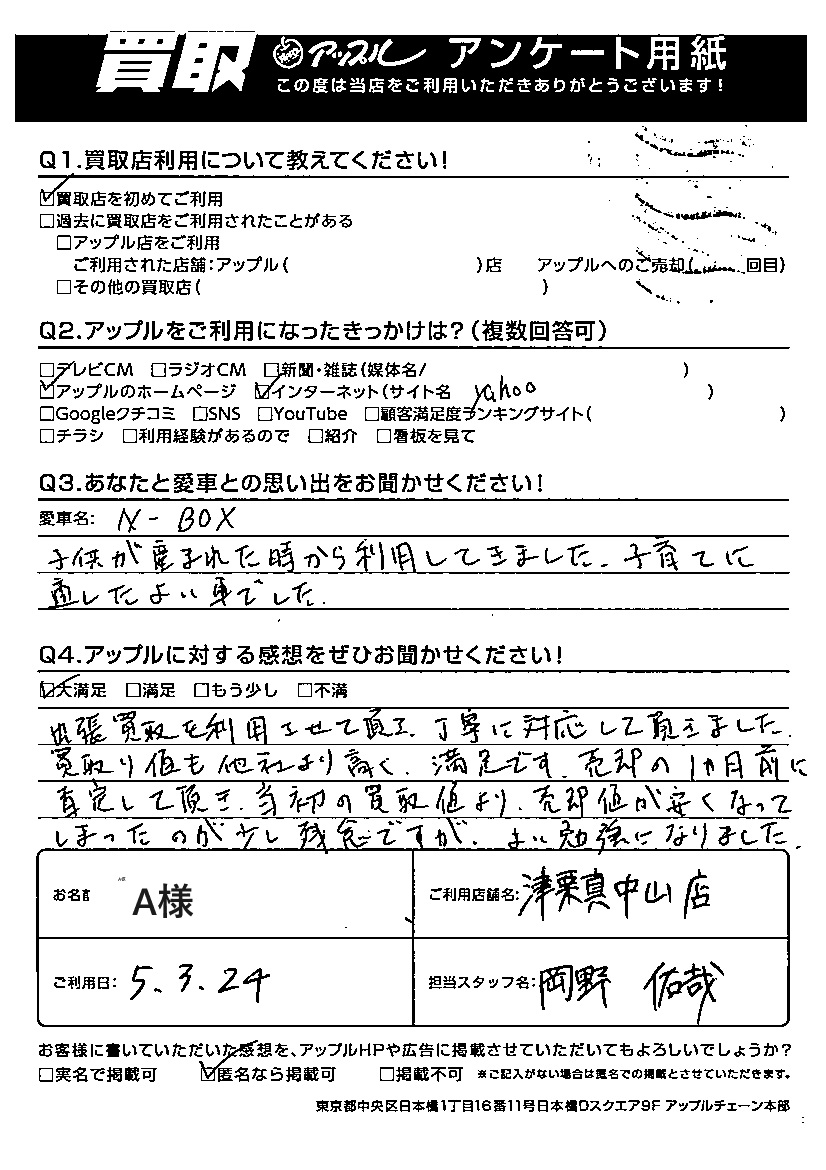 買取 アップル アンケート用紙
この度は当店をご利用いただきありがとうございます!
Q1.買取店利用について教えてください!
☑買取店を初めてご利用
□過去に買取店をご利用されたことがある
□アップル店をご利用
ご利用された店舗:アップル( )店 アップルへのご売却( 回目)
□その他の買取店( )
Q2.アップルをご利用になったきっかけは?(複数回答可)
□テレビCM □ラジオCM □新聞・雑誌(媒体名/ )
☑アップルのホームページ ☑インターネット(サイト名 yahoo )
□Googleクチコミ □SNS □YouTube □顧客満足度ランキングサイト( )
□チラシ □利用経験があるので □紹介 □看板を見て
Q3.あなたと愛車との思い出をお聞かせください!
愛車名: N-BOX
子供が産まれた時から利用してきました。子育てに
適したよい車でした。
Q4.アップルに対する感想をぜひお聞かせください!
☑大満足 □満足 □もう少し □不満
出張買取を利用させて頂き、丁寧に対応して頂きました。
買取り値も他社より高く、満足です。売却の1カ月前に
査定して頂き、当初の買取値より、売却値が安くなって
しまったのが少し残念ですが、よい勉強になりました。
お名前 A様 ご利用店舗名:津栗真中山店
ご利用日: 5.3.24 担当スタッフ名:岡野 佑哉
お客様に書いていただいた感想を、アップルHPや広告に掲載させていただいてもよろしいでしょうか?
□実名で掲載可 ☑匿名なら掲載可 □掲載不可 ※ご記入がない場合は匿名での掲載とさせていただきます。
東京都中央区日本橋1丁目16番11号日本橋Dスクエア9F アップルチェーン本部